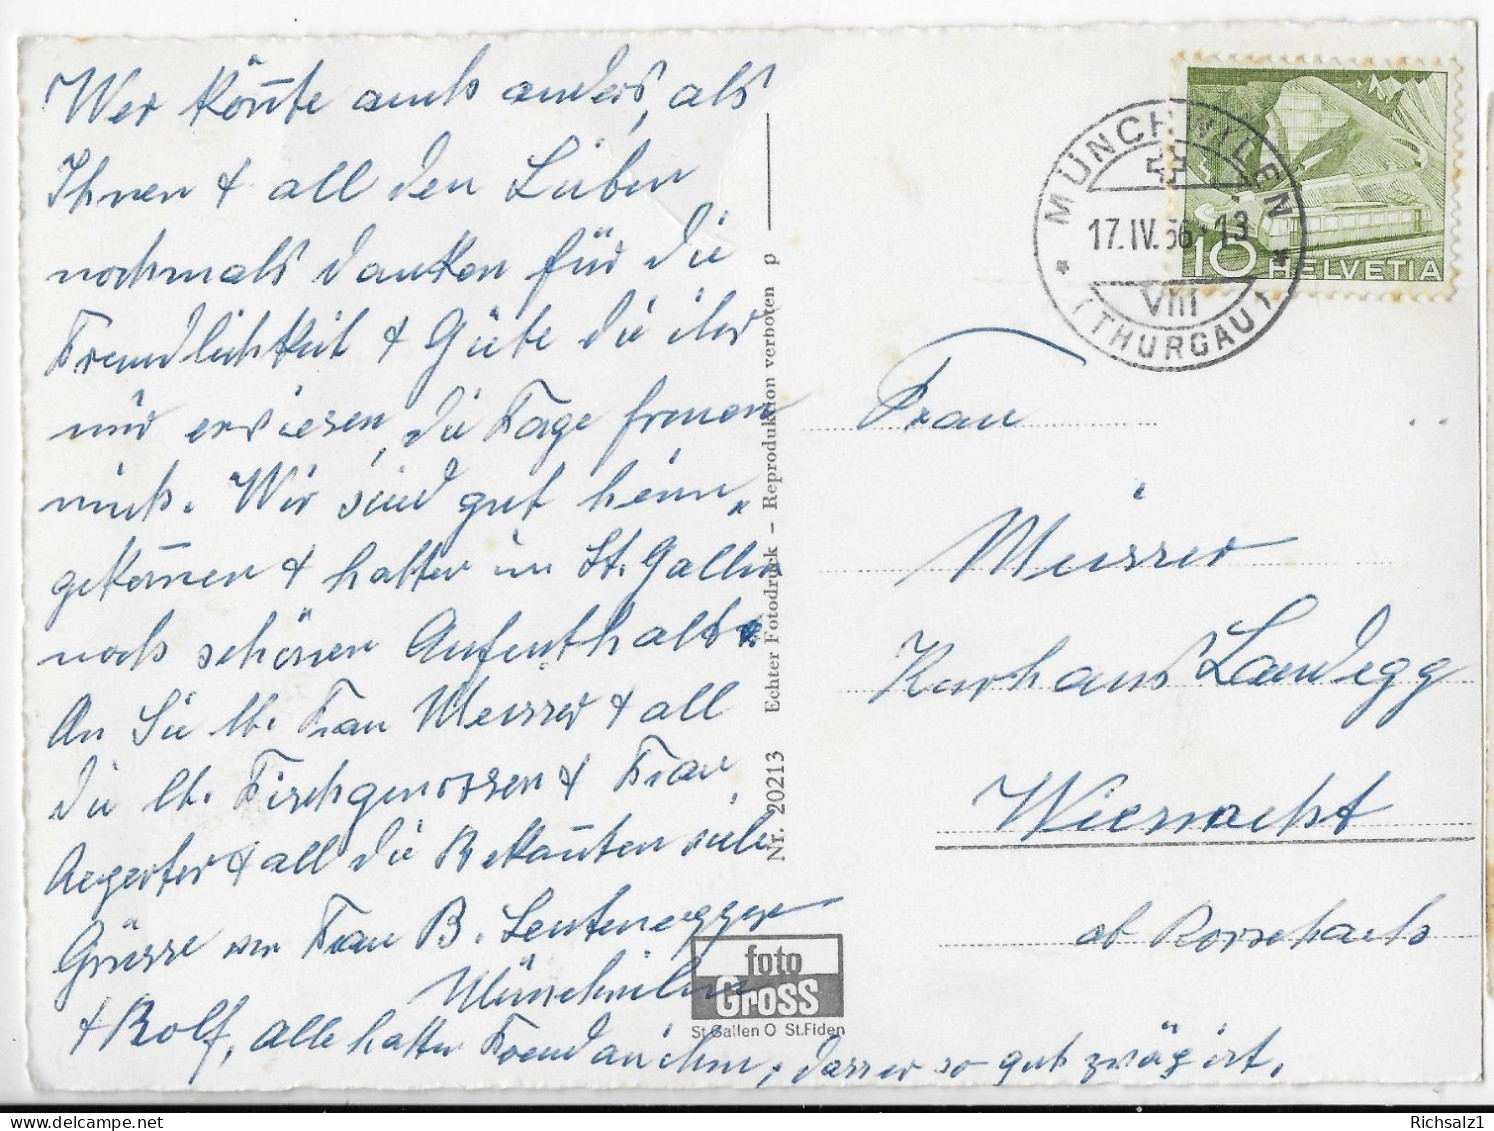 Wer könnte auch anders, als
Ihnen & all den Lieben
nochmals danken für die
Freundlichkeit & Güte die ihr
mir erwiesen, die Tage freuen
mich. Wir sind gut heim„
gekommen & hatten in St. Gallen
noch schönen Aufenthalt.
An Sie lb. Frau Meisser & all
die lb. Tischgenossen & Frau
Aegerter & all die Bekannten viele
Grüsse von Frau B. Leutenegger
Münchwilen
& Rolf, alle hatten Freud an ihm, dasser so gut zwäg ist.
Nr. 20213 Echter Fotodruck – Reproduktion verboten p
foto
Gross
St.Gallen O St.Fiden
MÜNCHWILEN
17.IV.56-13
VIII
(THURGAU)
10 HELVETIA
Frau
Meisser
Kurhaus Landegg
Wienacht
ob Rorschach
Richsalz1